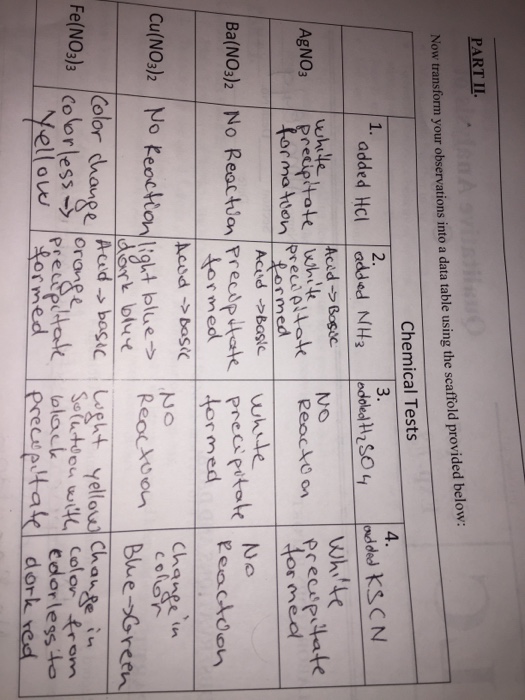 PART II.
Now transform your observations into a data table using the scaffold provided below:
Chemical Tests
1. added HCl
2. added NH3
3. added H2SO4
4. added KSCN
AgNO3
white
precipitate
formation
Acid -> Basic
white
precipitate
formed
No
Reaction
White
precipitate
formed
Ba(NO3)2
No Reaction
Acid -> Basic
precipitate
formed
White
precipitate
formed
No
Reaction
Cu(NO3)2
No Reaction
Acid -> basic
light blue ->
dark blue
No
Reaction
Change in
color
Blue -> Green
Fe(NO3)3
Color change
colorless ->
Yellow
Acid -> basic
orange
precipitate
formed
Light yellow
solution with
black
precipitate
Change in
color from
colorless to
dark red